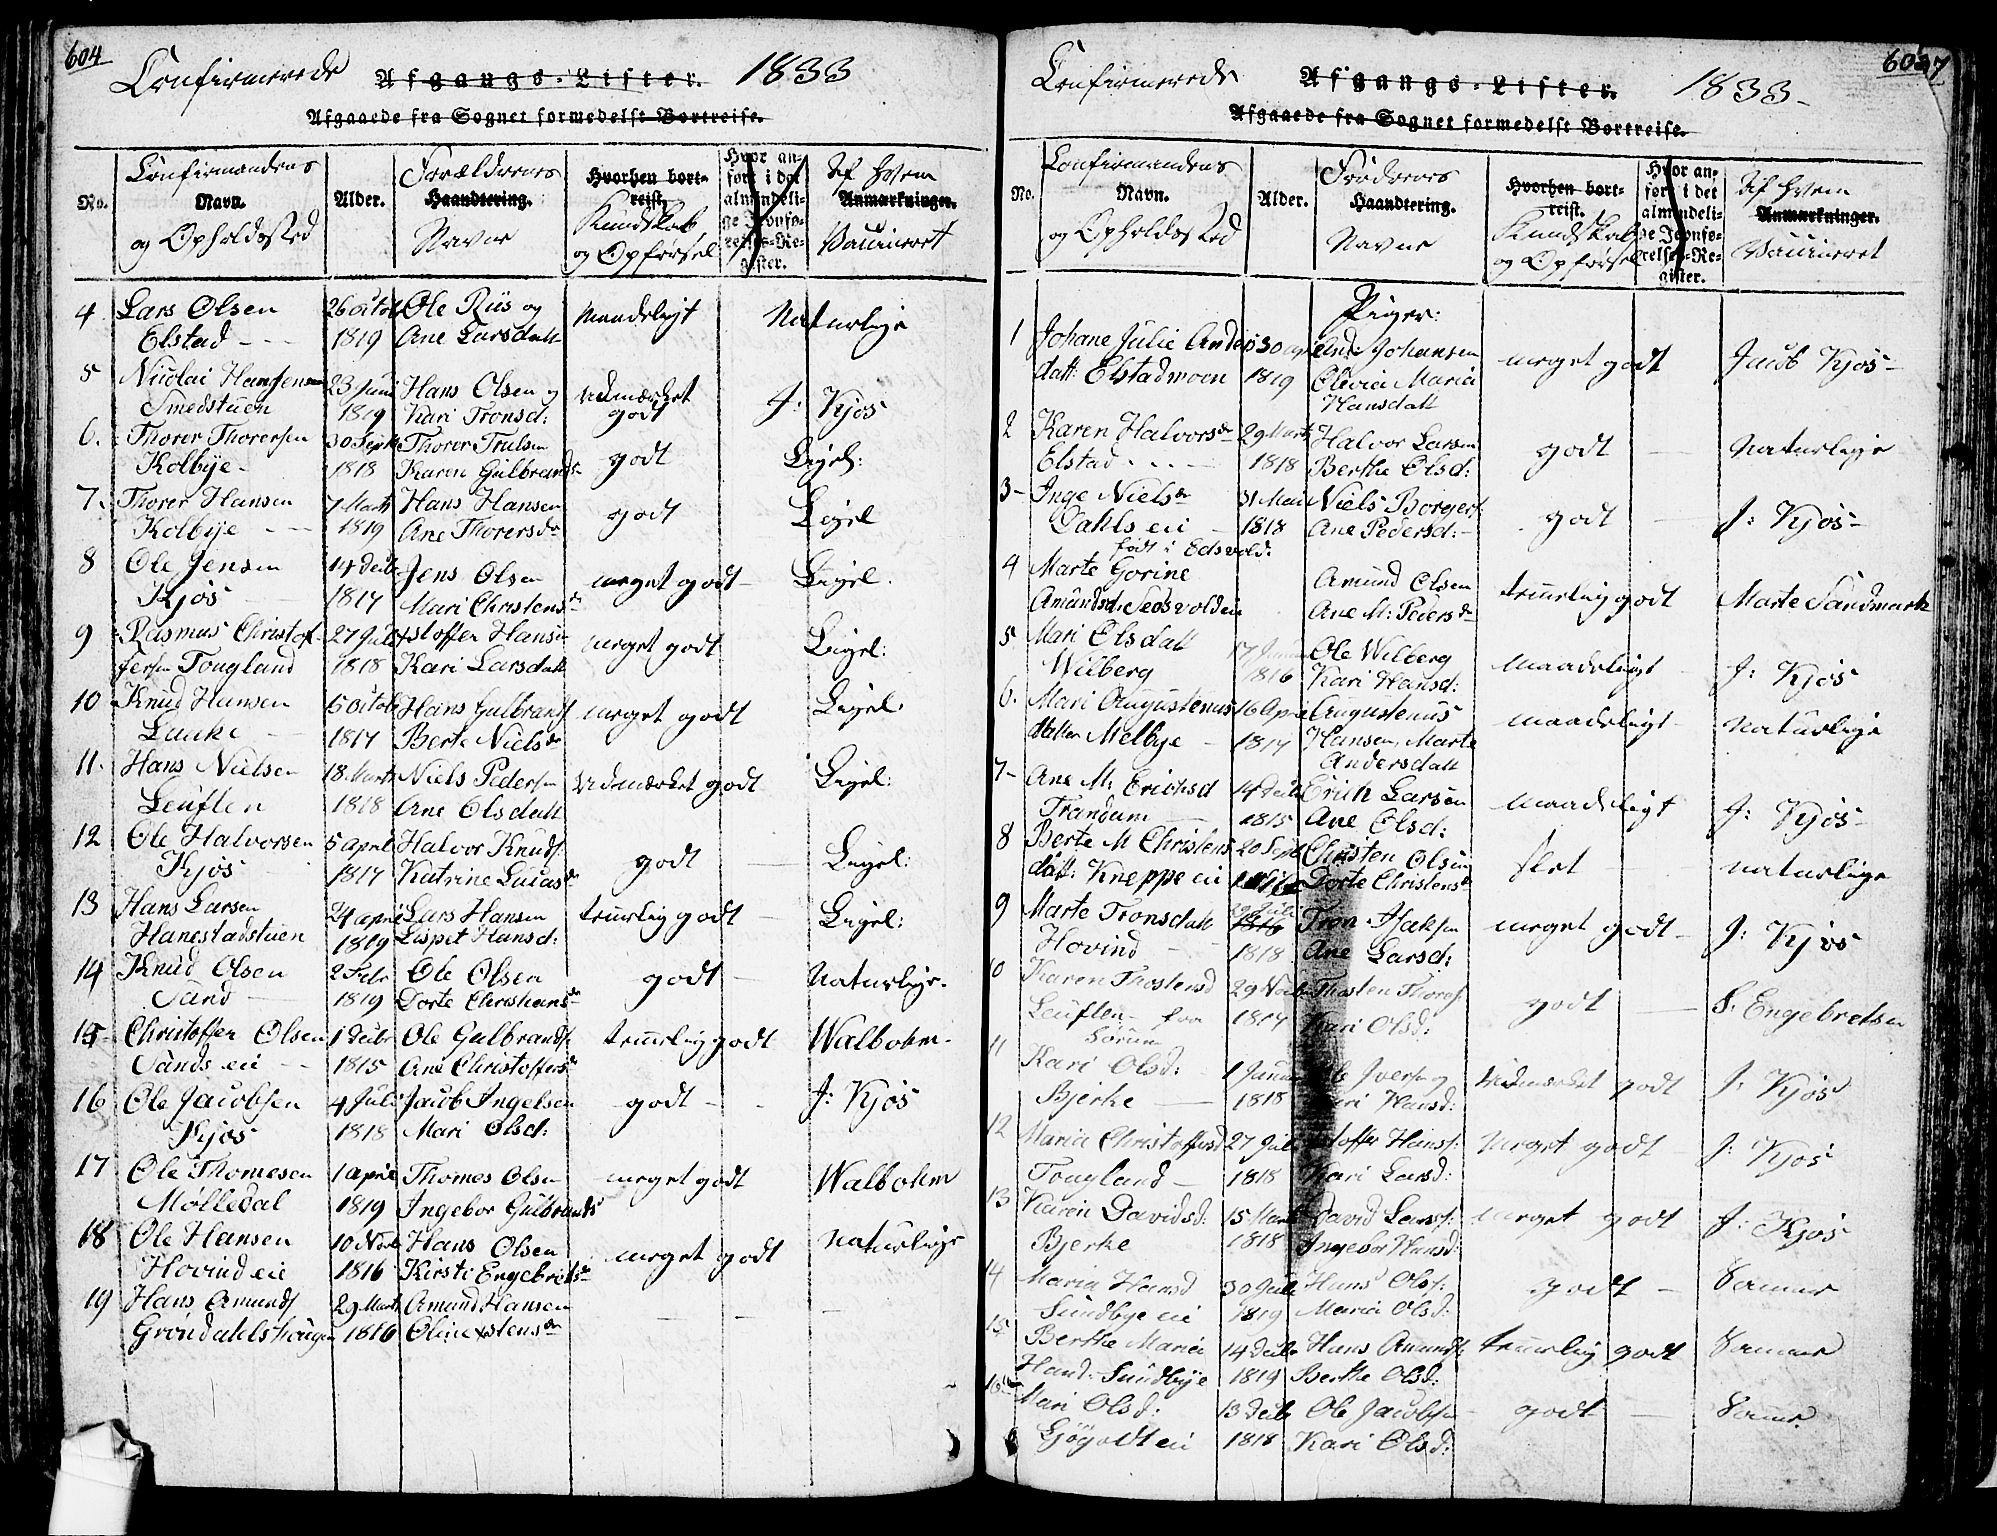 604
Confirmerede Afgangs-Lister. 1833
Afgaaede fra Sognet formedelst Bortreise.
No. Confirmandens Navn. og Opholdssted Alder. Forældrenes Haandtering. Navne Hvorhen bortreist. Kundskab og Opførsel Hvor anført i det almindelige Jevnførelses-Register. Af hvem Anmærkninger. Vaccineret
4 Lars Olsen 26 Octob Ole Riis og maadeligt Naturlige
Elstad - - - 1819 Ane Larsdatt
5 Nicolai Hansen 23 Juni Hans Olsen og udmærket J: Kjøs
Smedstuen 1819 Kari Tronsd: godt
6. Thorer Thorersen 30 Septb Thorer Trulsen godt Ligel:
Kolbye - 1818 Karen Gulbrandsdr
7. Thorer Hansen 7 Marts Hans Hansen godt Ligel
Kolbye - - 1819 Ane Thorersdr
8 Ole Jensen 14 Decbr Jens Olsen meget godt - Ligel.
Kjøs - 1817 Mari Christensdr
9 Rasmus Christof- 27 Juli Xstoffer Hansen meget godt Ligel:
fersen Tougland 1818 Kari Larsdatt
10 Knud Hansen 5 Octob Hans Gulbrands. meget godt Ligel:
Laake - 1817 Berte Nielsdr
11. Hans Nielsen 18 Marts Niels Pedersen udmærket godt Ligel:
Leuflen 1818 Ane Olsdatt
12 Ole Halvorsen 5 April Halvor Knuds. godt Ligel:
Kjøs 1817 Katrine Lucasdr
13 Hans Larsen 24 April Lars Hansen temmelig godt - Ligel:
Hanestadstuen 1819 Lispet Hansd:
14 Knud Olsen 2 Febr Ole Olsen godt - Naturlige.
Sand - 1819 Dorte Christiansdr
15 Christoffer Olsen 1 Decbr Ole Gulbrands. temmelig godt Walbohm.
Sands eie - - 1815 Ane Christoffersdr
16 Ole Jacobsen 4 Juli Jacob Ingelsen godt - - J: Kjøs
Kjøs 1818 Mari Olsd:
17 Ole Thomesen 1 April Thomes Olsen meget godt Walbohm
Mølledal 1819 Ingebor Gulbrands
18 Ole Hansen 10 Novb Hans Olsen meget godt Naturlige
Hovind eie 1816 Kirsti Engebretsdr
19 Hans Amunds. 29 Marts Amund Hansen - - -
Grøndahlshaugen 1816 Oline Xstensdr
607
Confirmerede Afgangs-Lister. 1833-
Afgaaede fra Sognet formedelst Bortreise.
No. Confirmandens Navn. og Opholdssted Alder. Haandtering. Navne Hvorhen bortreist. Kundskab og Opførsel Hvor anført i det almindelige Jevnførelses-Register. Af hvem Anmærkninger. Vaccineret
Piger:
1 Johane Julie Anders 30 Johansen meget godt Jacob Kjøs -
datt: Elstadmoen 1819 Olevia Maria
Hansdatt
2 Karen Halvorsdr 29 Marts Halvor Larsen godt - Naturlige
Elstad - - - - 1818 Berthe Olsd:
3 - Inge Nielsdr 31 Mai Niels Borgers. godt - J: Kjøs -
Dahls eie - 1818 Ane Pedersd: -
født i Edsvold:
4 Marte Gorine Amund Olsen temmelig godt Marte Sandmark
Amundsd: Ane M: Pedersdr
5 Mari Olsdatt 17 Ole Wilberg maadeligt - J: Kjøs
Wilberg 1816 Kari Hansd:
6. Mari Augustenus 16 April Augustenus maadeligt - Naturlige
datter Melbye - 1817 Hansen, Marte
Andersdatt
7 - Ane M: Erichsd 14 Decb Erich Larsen maadeligt J: Kjøs
Trandum - 1815 Ane Olsd:
8 Berte M Christens 20 Septb Christen Olsen slet naturlige
datt: Kneppe eie Dorte Christensdr
9 Marte Tronsdatt 29 Juli Tron Isaksen meget godt - J: Kjøs
Hovind - - 1818 Ane Larsd:
10 Karen Thostensd 29 Novb Thosten Thores. godt - S: Engebretsen
Leuflen - fra 1817 Kari Olsd:
Sørum
11 Kari Olsd: 1 Januar Ole Iversen og udmærket godt J: Kjøs
Bjerke - 1818 Kari Hansd:
12 Maria Christoffersd 27 Juli Xstoffer Hanss: meget godt - J: Kjøs
Tougland - 1818 Kari Larsd:
13 Karen Davidsd: 15 Marts David Larss: meget godt J: Kjøs
Bjerke 1818 Ingebor Hansd:
14 Maria Hansd 30 Juli Hans Olss: godt - Samme
Sundbye eie 1819 Maria Olsd:
15 Berthe Maria 14 Decb Hans Amunds. temmelig godt Samme
Hansd: Sundbye 1819 Berthe Olsd:
16 Mari Olsd: 13 Decb Ole Jacobsen - godt - Samme
eie 1818 Kari Olsd: